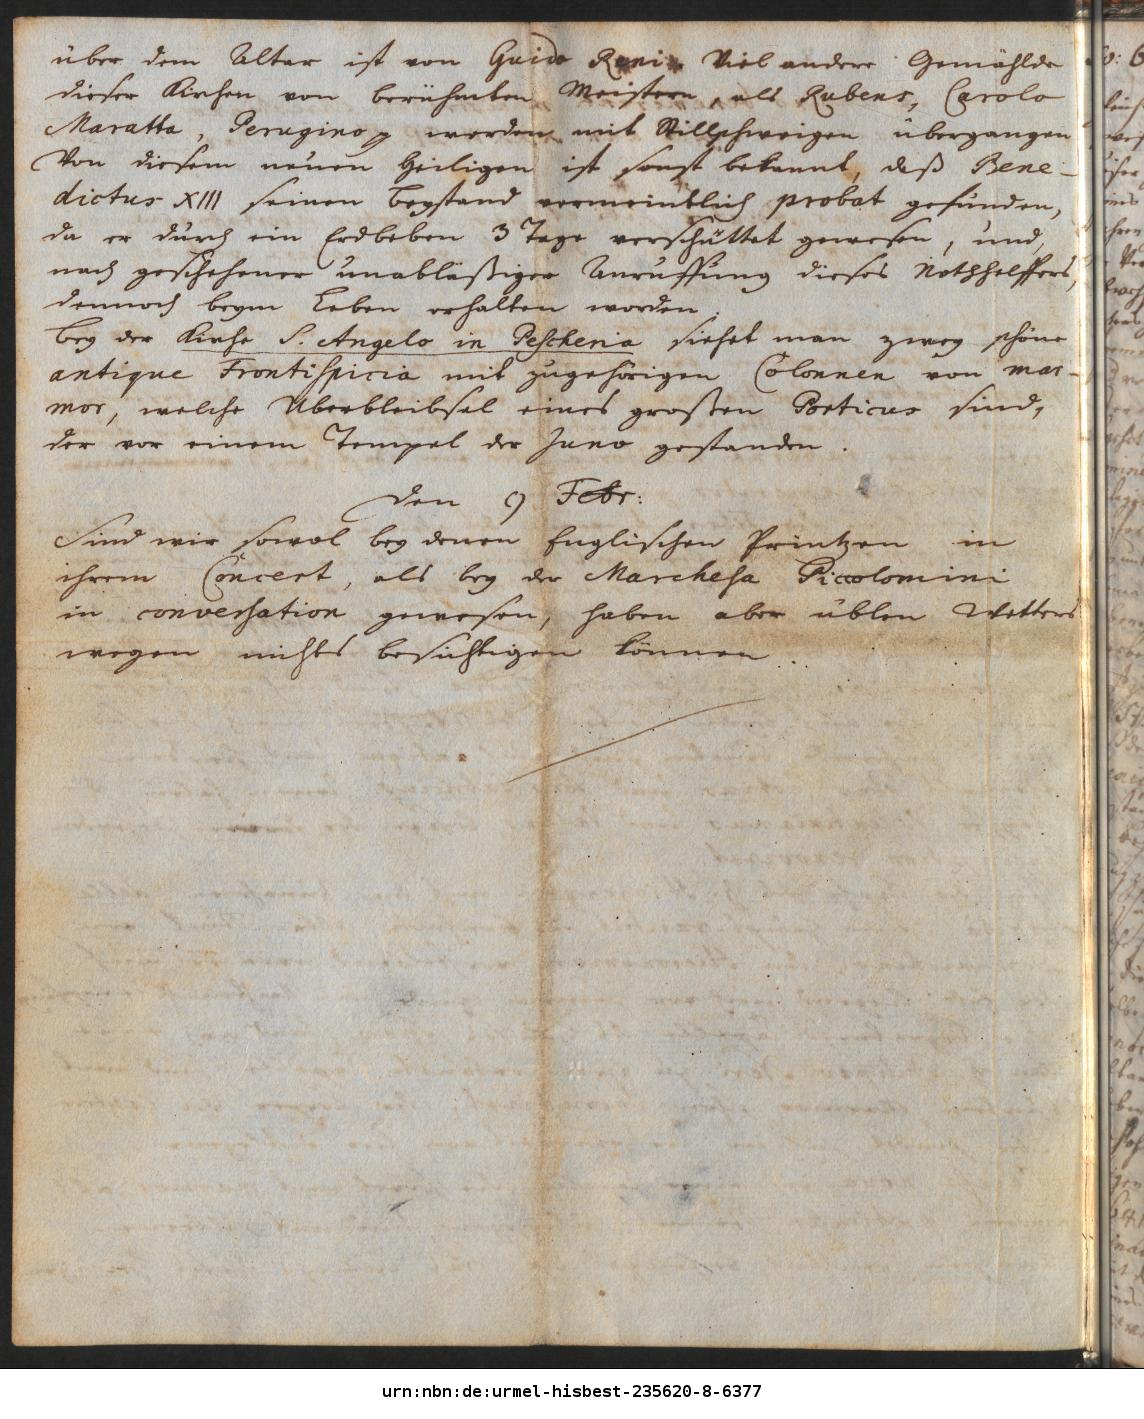 über dem Altar ist von Guido Reni. Viel andere Gemählde
dieser Kirchen von berühmten Meistern, als Rubens, Carolo
Maratta, Perugino werden mit Stillschweigen übergangen
Von diesem neuen Heiligen ist sonst bekannt, daß Bene-
dictus XIII seinen Beystand vermeintlich probat gefunden,
da er durch ein Erdbeben 3 Tage verschüttet gewesen, und,
nach geschehener unabläßiger Anruffung dieses Nothhelffers,
dennoch beym Leben erhalten worden.
Bey der Kirche S. Angelo in Pescheria siehet man zwey schöne
antique Frontispicia mit zugehörigen Colonnen von mar-
mor, welche Überbleibsel eines großen Porticus sind,
der vor einem Tempel der Juno gestanden.
den 9 Febr:
Sind wir sowol bey denen Englischen Printzen in
ihrem Concert, als bey der Marchesa Piccolomini
in conversation gewesen, haben aber üblen Wetters
wegen nichts besichtigen können.
urn:nbn:de:urmel-hisbest-235620-8-6377